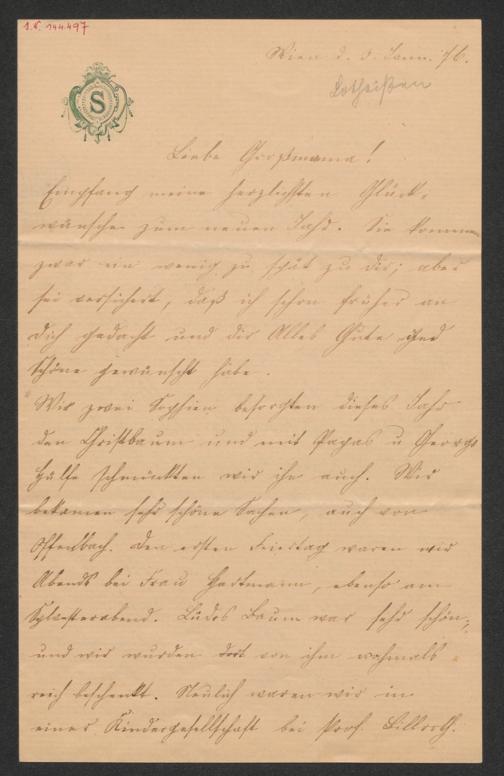 I.N. 144.497
Wien d. 3. Jann. 76.
Lotheißen
S
Liebe Großmama!
Empfang meine herzlichsten Glück-
wünsche zum neuen Jahr. Sie kommen
zwar ein wenig zu spät zu dir; aber
sei versichert, daß ich schon früher an
dich gedacht und dir Alles Gute und
Schöne gewünscht habe.
Wir zwei Sophien besorgten dieses Jahr
den Christbaum und mit Papas u Georgs
Hülfe schmückten wir ihn auch. Wir
bekamen sehr schöne Sachen, auch von
Offenbach. Den ersten Feiertag waren wir
Abends bei Frau Hartmann, ebenso am
Sylvesterabend. Ludos Baum war sehr schön;
und wir wurden dort von ihm nochmals
reich beschenkt. Neulich waren wir in
einer Kindergesellschaft bei Prof. Billroth.